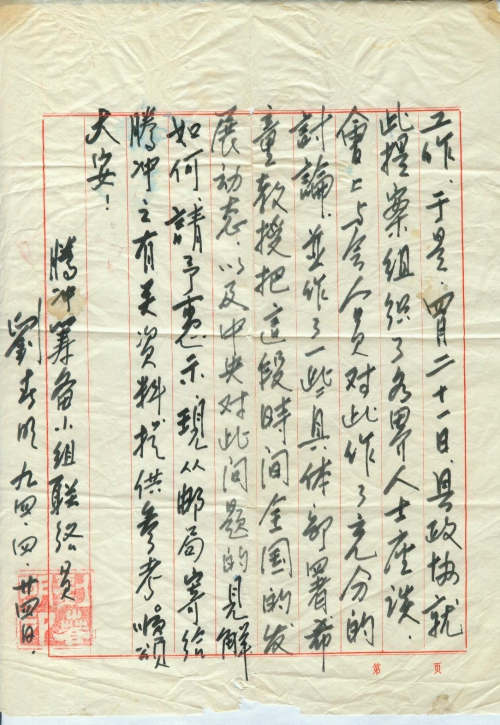 工作．于是．四月二十一日．县政协就
此提案组织了各界人士座谈．
會上与会人员对此作了充分的
討論．並作了一些具体部署希
童教授把這段時间全国的发
展动态．以及中央对此问题的見解
如何．請予惠示现从邮局寄给
腾冲之有关资料提供参考順頌
大安！
腾冲筹备小组联络员
劉春明 九四．四．廿四日．
第 页